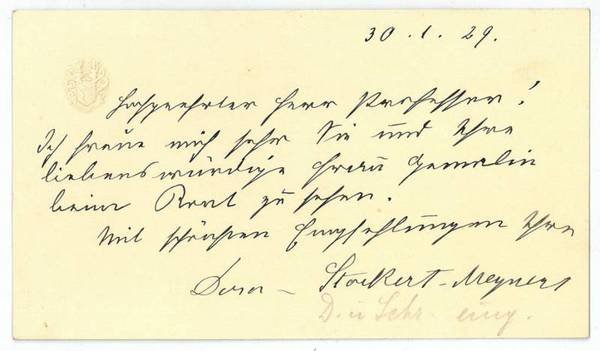 30.1.29.
Hochgeehrter Herr Professor!
Ich freue mich sehr Sie und Ihre
liebenswürdige Frau Gemalin
beim zu sehen.
Mit schönsten Empfehlungen Ihre
Dora Stockert-Meynert